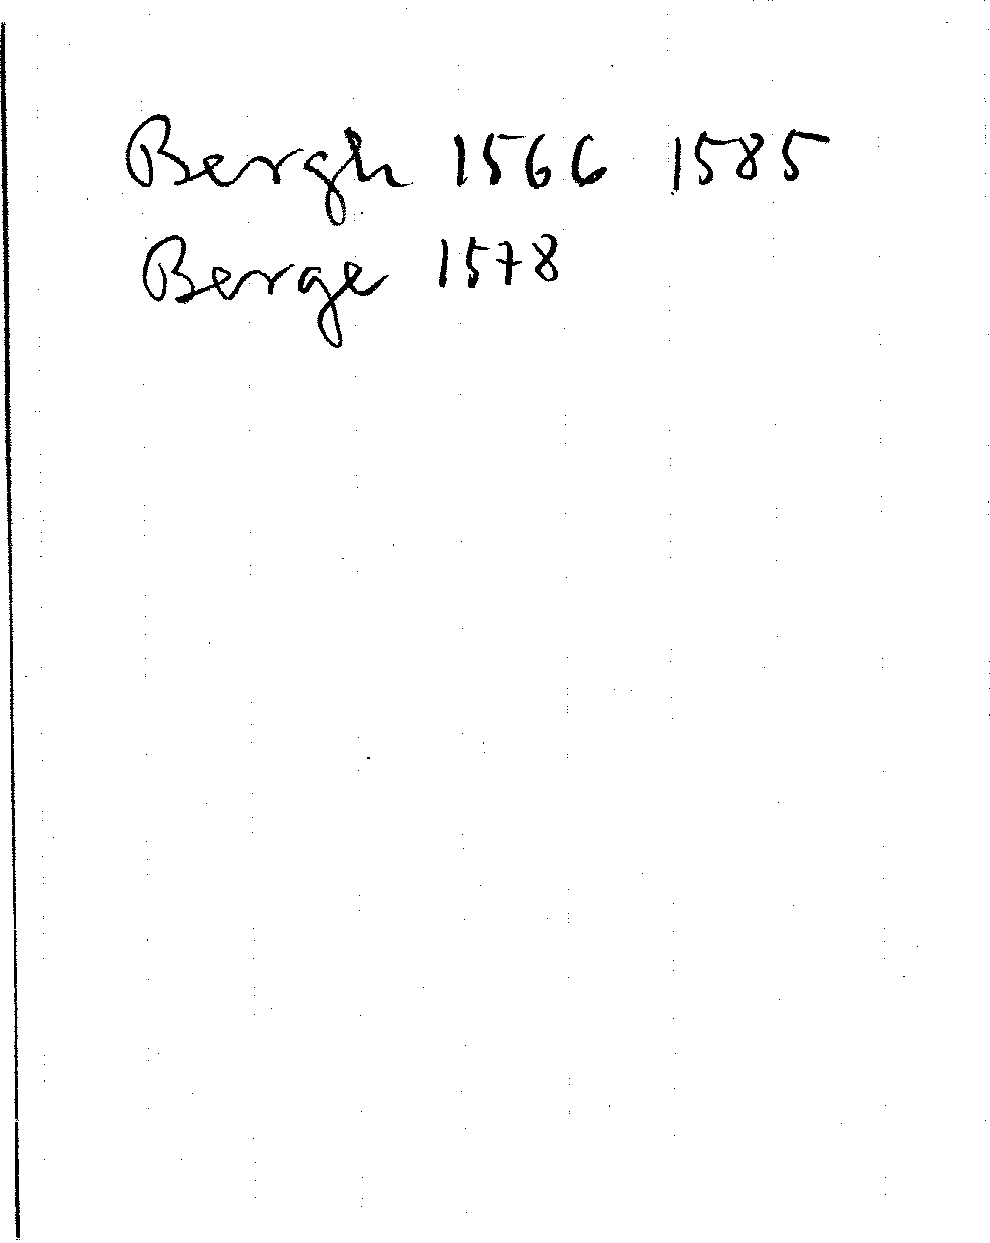 Bergh 1566 1585
Berge 1578